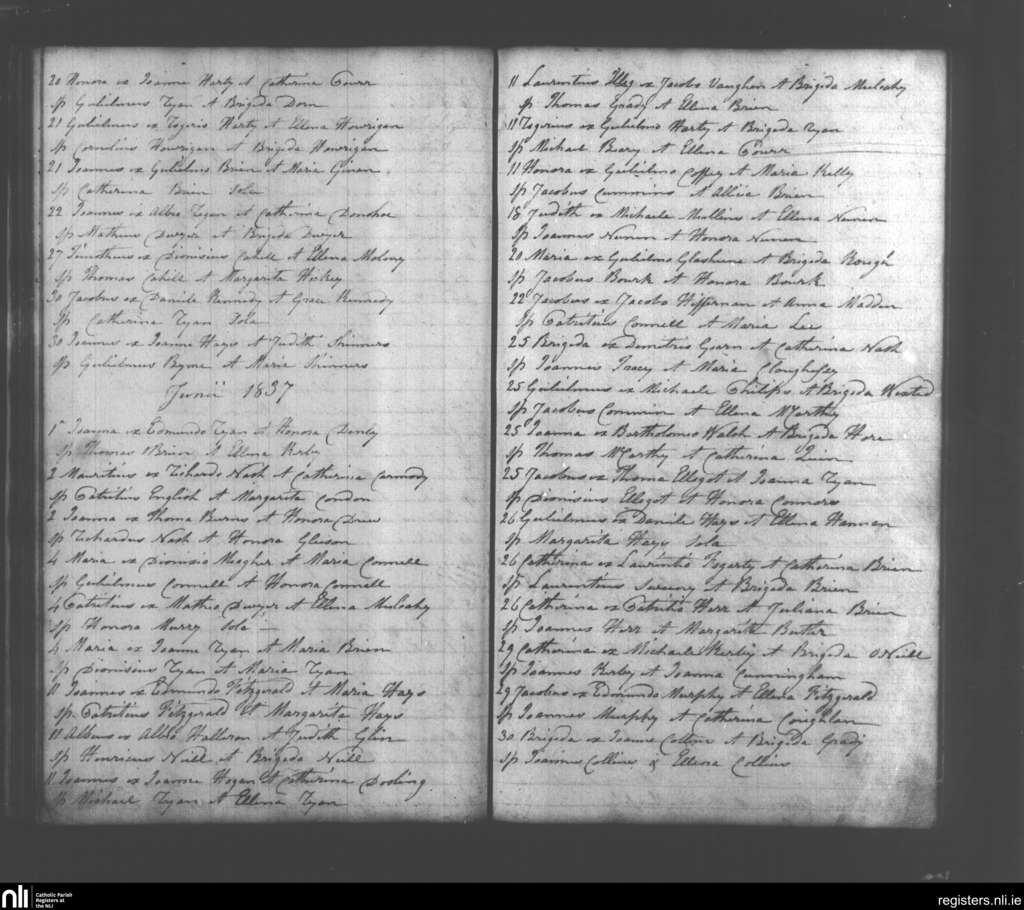 20 Honora ex Joanne Harty et Catherina Fourr
sp Gulielmus Ryan et Brigida Dorn
21 Gulielmus ex Rogerio Harty et Ellena Hourigan
sp Cornelius Hourigan et Brigida Hourigan
21 Joannes ex Gulielmo Brien et Maria
sp Catherina Brien Sola
22 Joannes ex Albio Ryan et Catherina Donohoe
sp Matheus Dwyer et Brigida Dwyer
27 Timotheus ex Dionisius Cahill et Ellena Molony
sp Thomas Cahill et Margarita Hickey
30 Jacobus ex Daniele Kennedy et Grace Kennedy
sp Catherina Ryan Sola
30 Joannes ex Joanne Hays et Judith Skinners
sp Gulielmus Byrne et Maria Skinners
Junii 1837
1 Joanna ex Edmundo Ryan et Honora
sp Thomas OBrien et Ellena Kerby
2 Mauritius ex Richardo Nash et Catherina Carmody
sp Patritius English et Margarita Condon
2 Joanna ex Thoma Burns et Honora Drew
sp Richardus Nash et Honora Gleeson
4 Maria ex Dionisio Meagher et Maria Connell
sp Gulielmus Connell et Honora Connell
4 Patritius ex Matheo Dwyer et Ellena Mulcahy
sp Honora Murry Sola
6 Maria ex Joanne Ryan et Maria Brien
sp Dionisius Ryan et Maria Ryan
11 Joannes ex Edmundo Fitzgerald et Maria Hays
sp Patritius Fitzgerald et Margarita Hays
11 Albius ex Albio Halloran et Judith Glin
sp Henricus Neill et Brigida Neill
11 Joannes ex Joanne Hogan et Catherina Dooling
sp Michael Ryan et Ellena Ryan
11 Laurentius Illeg ex Jacobo Vaughan et Brigida Mulcahy
sp Thomas Grady et Ellena Brien
11 Rogerius ex Gulielmo Harty et Brigida Ryan
sp Michael Bary et Ellena Fourr
11 Honora ex Gulielmo Coffey et Maria Kelly
sp Jacobus Cummins et Allicia Brien
18 Judith ex Michaele Mullins et Ellena Nunen
sp Joannes Nunen et Honora Nunen
20 Maria ex Gulielmo Glasheene et Brigida Keough
sp Jacobus Bourk et Honora Bourk
22 Jacobus ex Jacobo Hiffernan et Anna Madden
sp Patritius Connell et Maria Lee
25 Brigida ex Demetrio et Catherina Nash
sp Joannes Tracy et Maria Cloughesey
25 Gulielmus ex Michaele Philips et Brigida Wixted
sp Jacobus Commin et Ellena McCarthy
25 Joanna ex Bartholomeo Walsh et Brigida Hora
sp Thomas McCarthy et Catherina Quin
25 Jacobus ex Thoma Ellegot et Joanna Ryan
sp Dionisius Ellegot et Honora Connors
26 Gulielmus ex Daniele Hays et Ellena Hannan
sp Margarita Hays Sola
26 Catherina ex Laurentio Fogerty et Catherina Brien
sp Laurentius Sweeny et Brigida Brien
26 Catherina ex Patritio Herr et Juliana Brien
sp Joannes Herr et Margarita Butler
29 Catherina ex Michaele Kerby et Brigida ONeill
sp Joannes Kirby et Joanna Cunningham
29 Jacobus ex Edmundo Murphy et Ellena Fitzgerald
sp Joannes Murphy et Catherina Coughlan
30 Brigida ex Joanne Collins et Brigida Grady
sp Joannes Collins & Ellena Collins
nli
Catholic Parish
Registers at
the NLI
registers.nli.ie